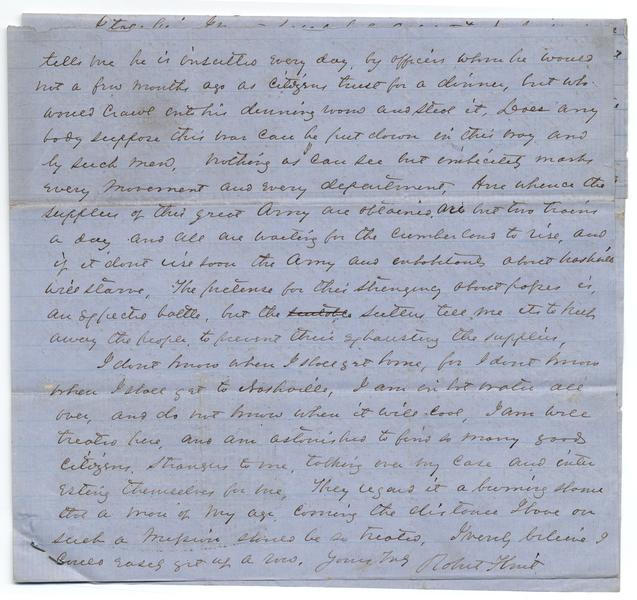 tells me he is insulted every day, by officers whom he would
not a few months ago as citizens trust for a dinner, but who
would crawl into his dining room and steal it, Does any
body suppose this war can be put down in this way and
by such men, Nothing as I can see but imbecility marks
every movement and every department, Here whence the
supplies of this great Army are obtained, are but two trains
a day and all are waiting for the Cumberland to rise, and
if it dont rise soon the Army and inhabitants about Nashville
will starve, The pretense for this stringency about passes is,
an expected battle, but the sutlers tell me its to keep
away the people to prevent their exhausting the supplies,
I dont know when I shall get home, for I dont know
when I shall get to Nashville, I am in hot water all
over, and do not know when it will cool, I am well
treated here, and am astonished to find so many good
citizens, strangers to me, talking over my case and inter
esting themselves for me, They regard it a burning shame
that a man of my age coming the distance I have on
such a mission should be so treated, I verily believe I
could easily get up a row, Yours Truly Robert